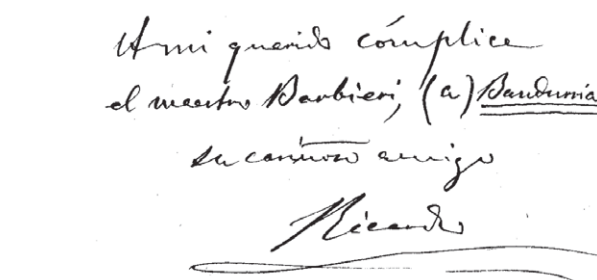 A mi querido cómplice
el maestro Barbieri, (a) Bandurria
su cariñoso amigo
Ricardo